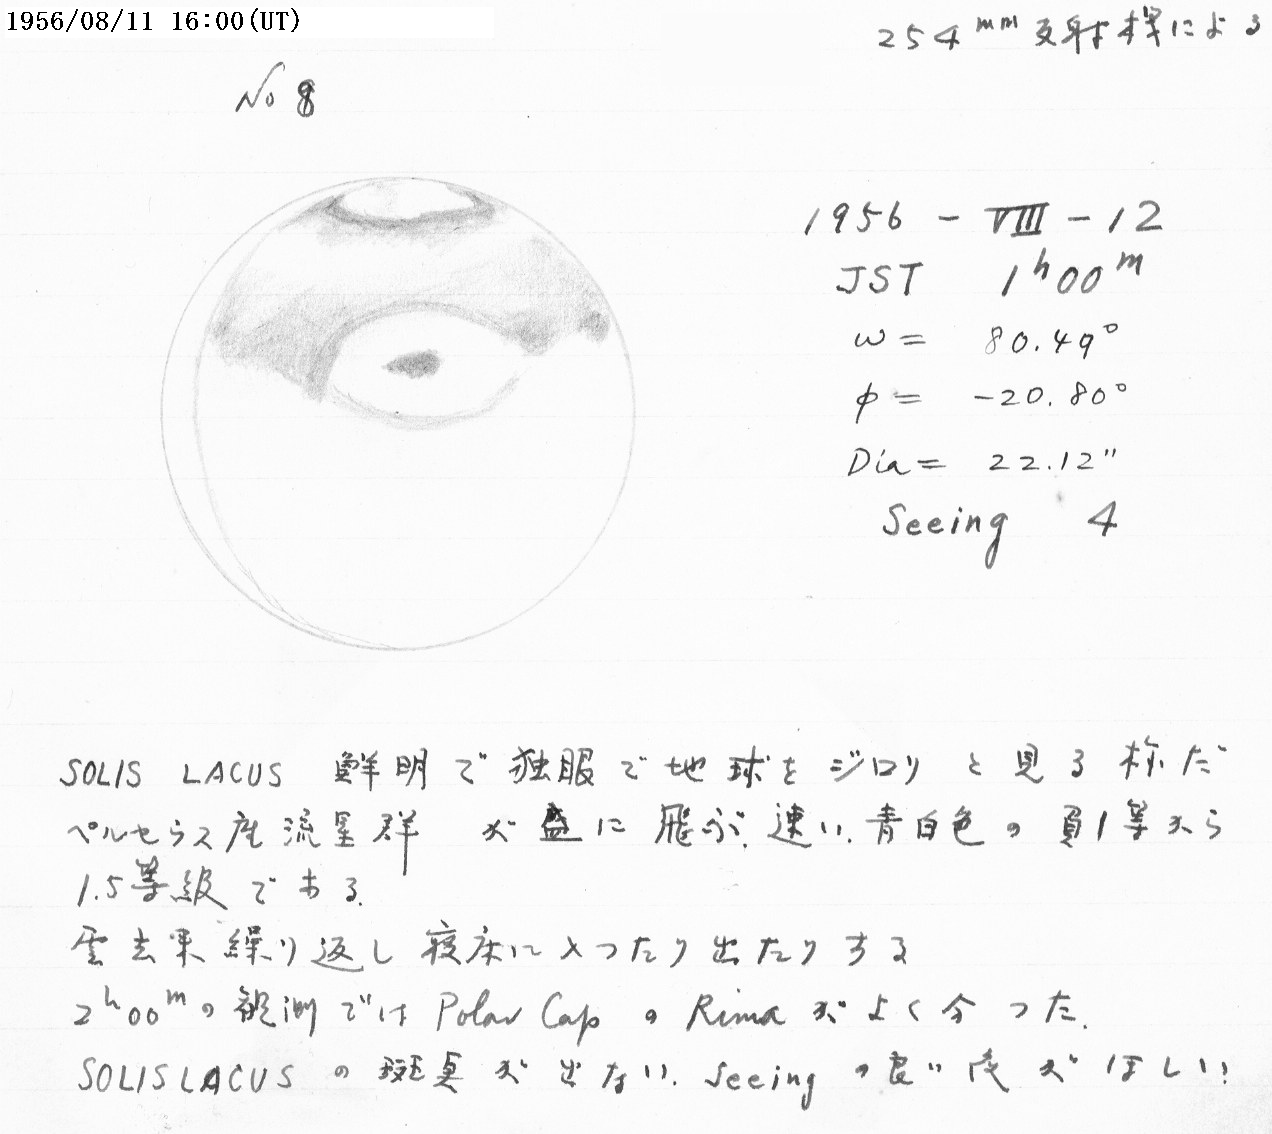 1956/08/11 16:00(UT)
254mm 反射鏡による
No 8
1956 - VIII - 12
JST 1h00m
ω = 80.49°
φ = -20.80°
Dia = 22.12"
Seeing 4
SOLIS LACUS 鮮明で独眼で地球をジロリと見る様だ
ペルセウス座流星群が盛に飛ぶ、速い、青白色の負1等から
1.5等級である。
雲去来繰り返し寝床に入ったり出たりする
2h00mの観測では Polar CapのRimaがよく分った。
SOLIS LACUSの斑点が出ない。Seeingの良い夜がほしい!